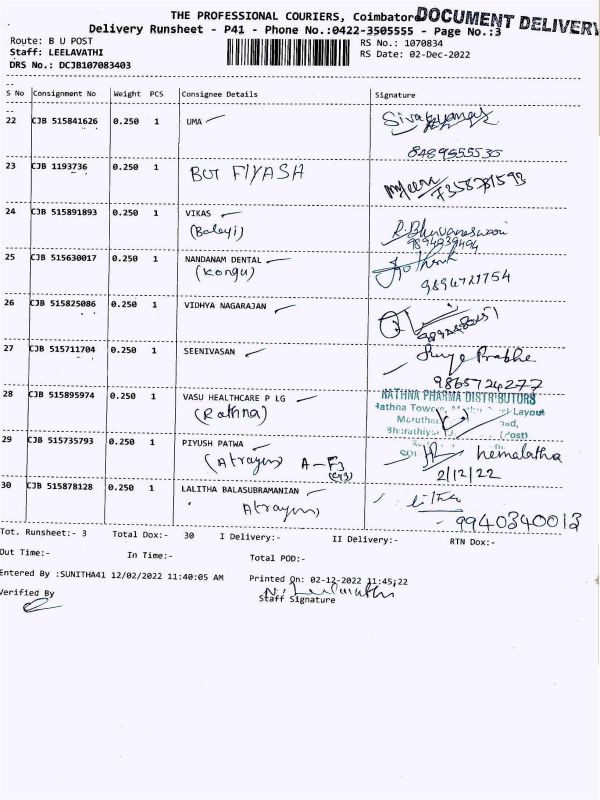 THE PROFESSIONAL COURIERS, Coimbatore
DOCUMENT DELIVERY
Delivery Runsheet - P41 - Phone No.:0422-3505555 - Page No.:3
Route: B U POST
RS No.: 1070834
Staff: LEELAVATHI
RS Date: 02-Dec-2022
DRS No.: DCJB107083403
S No Consignment No Weight PCS Consignee Details Signature
22 CJB 515841626 0.250 1 UMA
8489555535
23 CJB 1193736 0.250 1 BOT FIYASH
7358781593
24 CJB 515891893 0.250 1 VIKAS R.Bhuvaneswari
(Balaji) 9894939494
25 CJB 515630017 0.250 1 NANDANAM DENTAL
(Kongu) 9894721754
26 CJB 515825086 0.250 1 VIDHYA NAGARAJAN
27 CJB 515711704 0.250 1 SEENIVASAN Prabha
9865724277
28 CJB 515895974 0.250 1 VASU HEALTHCARE P LG RATHNA PHARMA DISTRIBUTORS
(Rathna) Rathna Tower, Layout
(Post)
29 CJB 515735793 0.250 1 PIYUSH PATWA Hemalatha
(Atrayam) A-F3
2/12/22
30 CJB 515878128 0.250 1 LALITHA BALASUBRAMANIAN
Atrayam 9940340013
Tot. Runsheet:- 3 Total Dox:- 30 I Delivery:- II Delivery:- RTN Dox:-
Out Time:- In Time:- Total POD:-
Entered By :SUNITHA41 12/02/2022 11:40:05 AM Printed On: 02-12-2022 11:45:22
Verified By Staff Signature